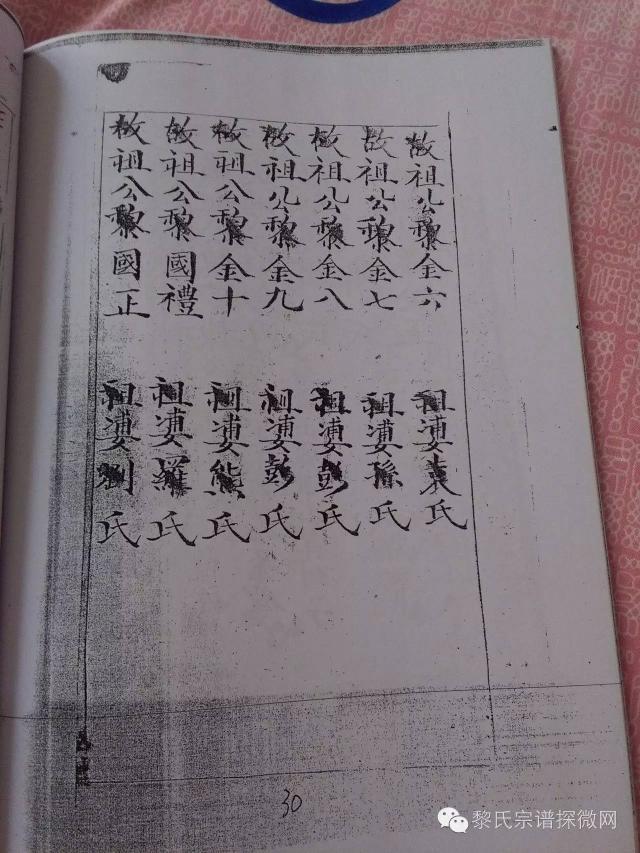 故祖公黎金六 祖婆袁氏
故祖公黎金七 祖婆孫氏
故祖公黎金八 祖婆彭氏
故祖公黎金九 祖婆彭氏
故祖公黎金十 祖婆熊氏
故祖公黎國禮 祖婆羅氏
故祖公黎國正 祖婆劉氏
30
黎氏宗谱探微网